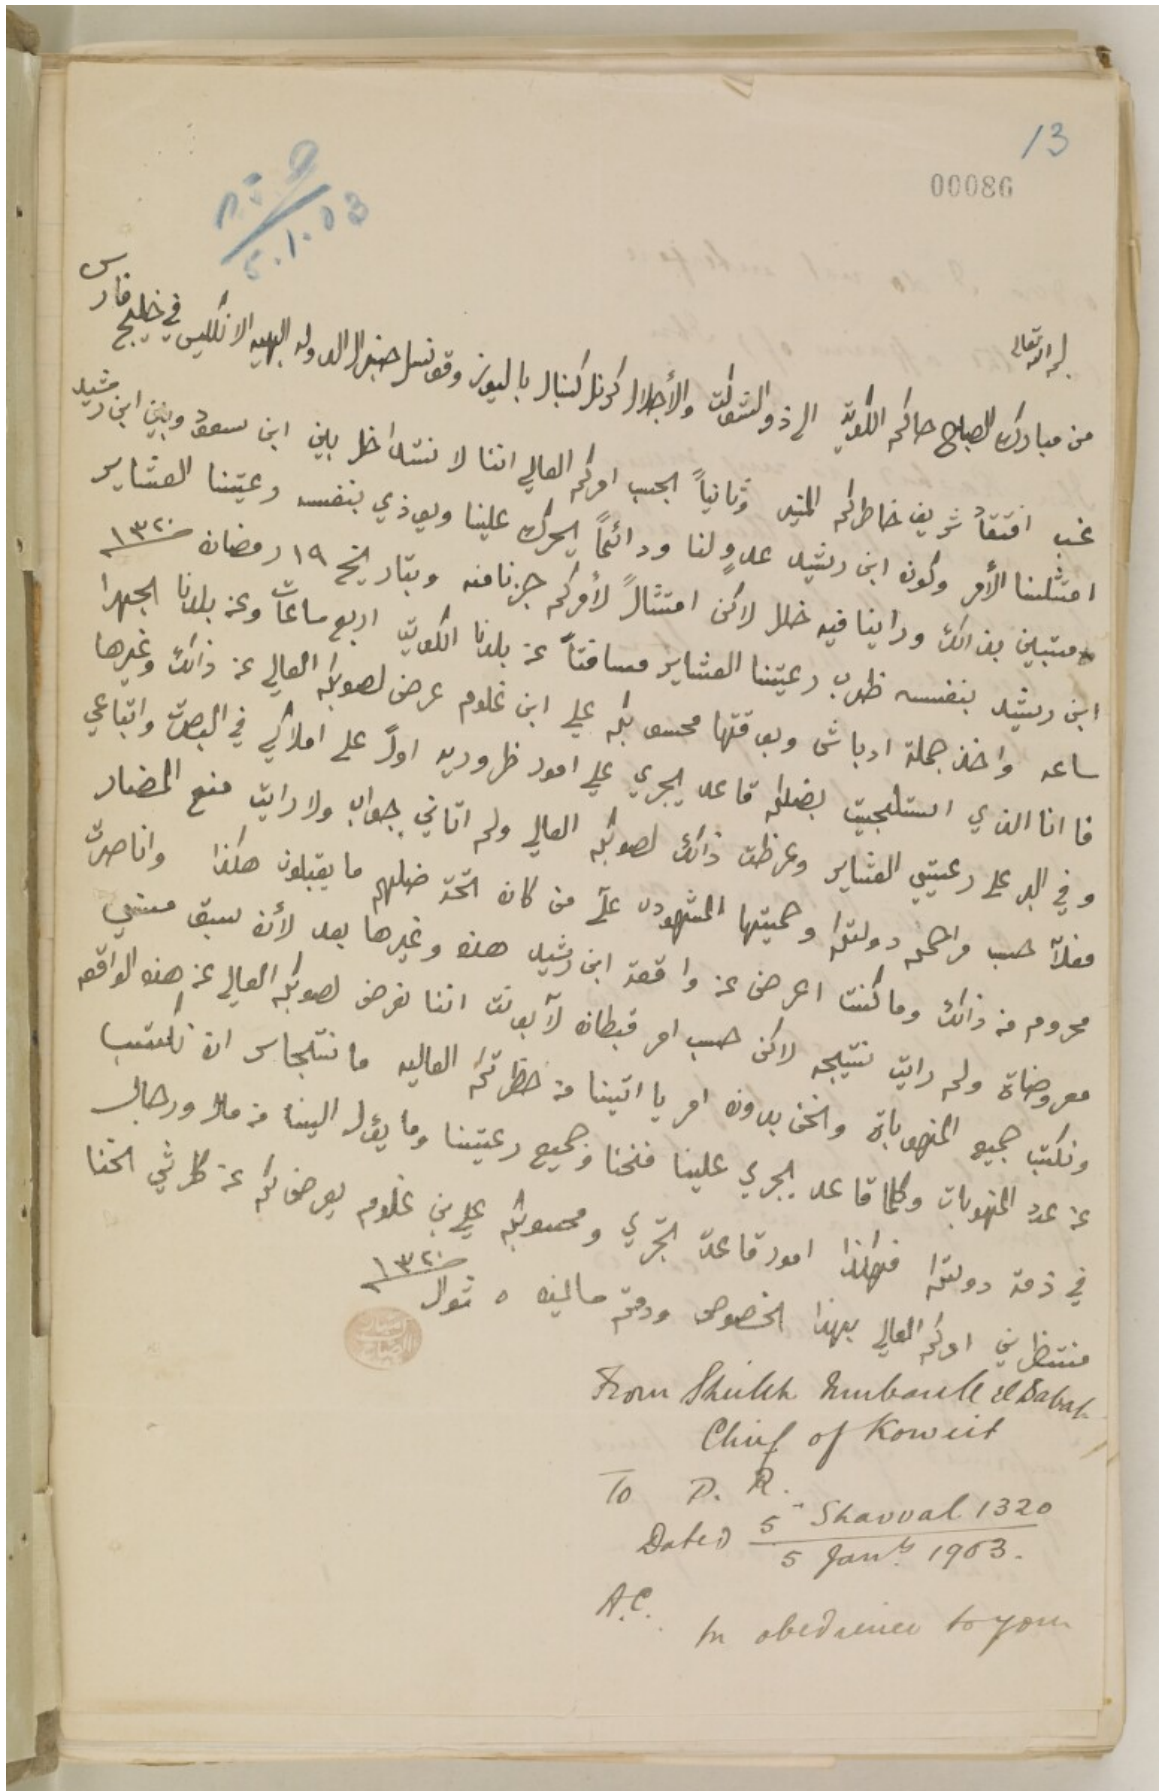 13
00086
5.1.03
بسم الله تعالى
من مبارك الصباح حاكم الكويت الى ذو الشوكت والأجلال كرنل كنبال باليوز وقونسل جنرال الدوله البهيه الانكليس في خليج فارس
غب افتقاد شريف خاطركم المنير وثانياً بحسب امركم العالي اننا لا نتداخل بين ابن سعود وبين ابن رشيد
امتثلنا الأمر وكون ابن رشيد عدو لنا ودائماً يحرك علينا ويوذي بنفسه رعيتنا العشاير
متبين بذالك وراينا فيه خلل لاكن امتثالاً لأمركم جزنا منه وبتاريخ ١٩ رمضان ١٣٢٠
ابن رشيد بنفسه ظرب رعيتنا العشاير مسافتاً عن بلدنا الكويت اربع ساعات وعن بلدنا الجهرا
ساعه واخذ جملة ادباش وبوقتها محسوبكم علي ابن غلوم عرض لصوبكم العالي عن ذالك وغيرها
فانا الذي استلجيت بضلكم قاعد يجري علي امور ظروريه اولاً على املاكي في البصرت واتباعي
وفي البر على رعيتي العشاير وعرظت ذالك لصوبكم العالي ولم اتاني جواب ولا رايت منع المضار
فعلاً حسب مراحم دولتكم وحميتها المشهوده على من كان تحت ضلهم ما يقبلون هكذا وانا صرت
محروم من ذالك وما كنت اعرض عن واقعة ابن رشيد هذه وغيرها بعد لأن سبق مني
معروضاة ولم رايت نتيجه لاكن حسب امر قبطان لابونت اننا نعرض لصوبكم العالي عن هذه الواقعه
ونكتب جميع المنهوباة ونحن بدون امر يا اتينا من حظرتكم العاليه ما نتجاسر ان نكتب
عن عدد المنهوبات وكلما قاعد يجري علينا فنحنا وجميع رعيتنا وما يؤل الينا من مال ورجال
في ذمة دولتكم فهكذا امور قاعدة تجري ومحسوبكم علي بن غلوم يعرض لكم عن كل شي نحنا
منتظرين امركم العالي بهذا الخصوص ودمتم سالمين ٥ شوال ١٣٢٠
From Shaikh Mubarak el Sabah
Chief of Koweit
To P. R.
Dated 5th Shavval 1320
5 Jany. 1903.
A.C.
In obedience to your